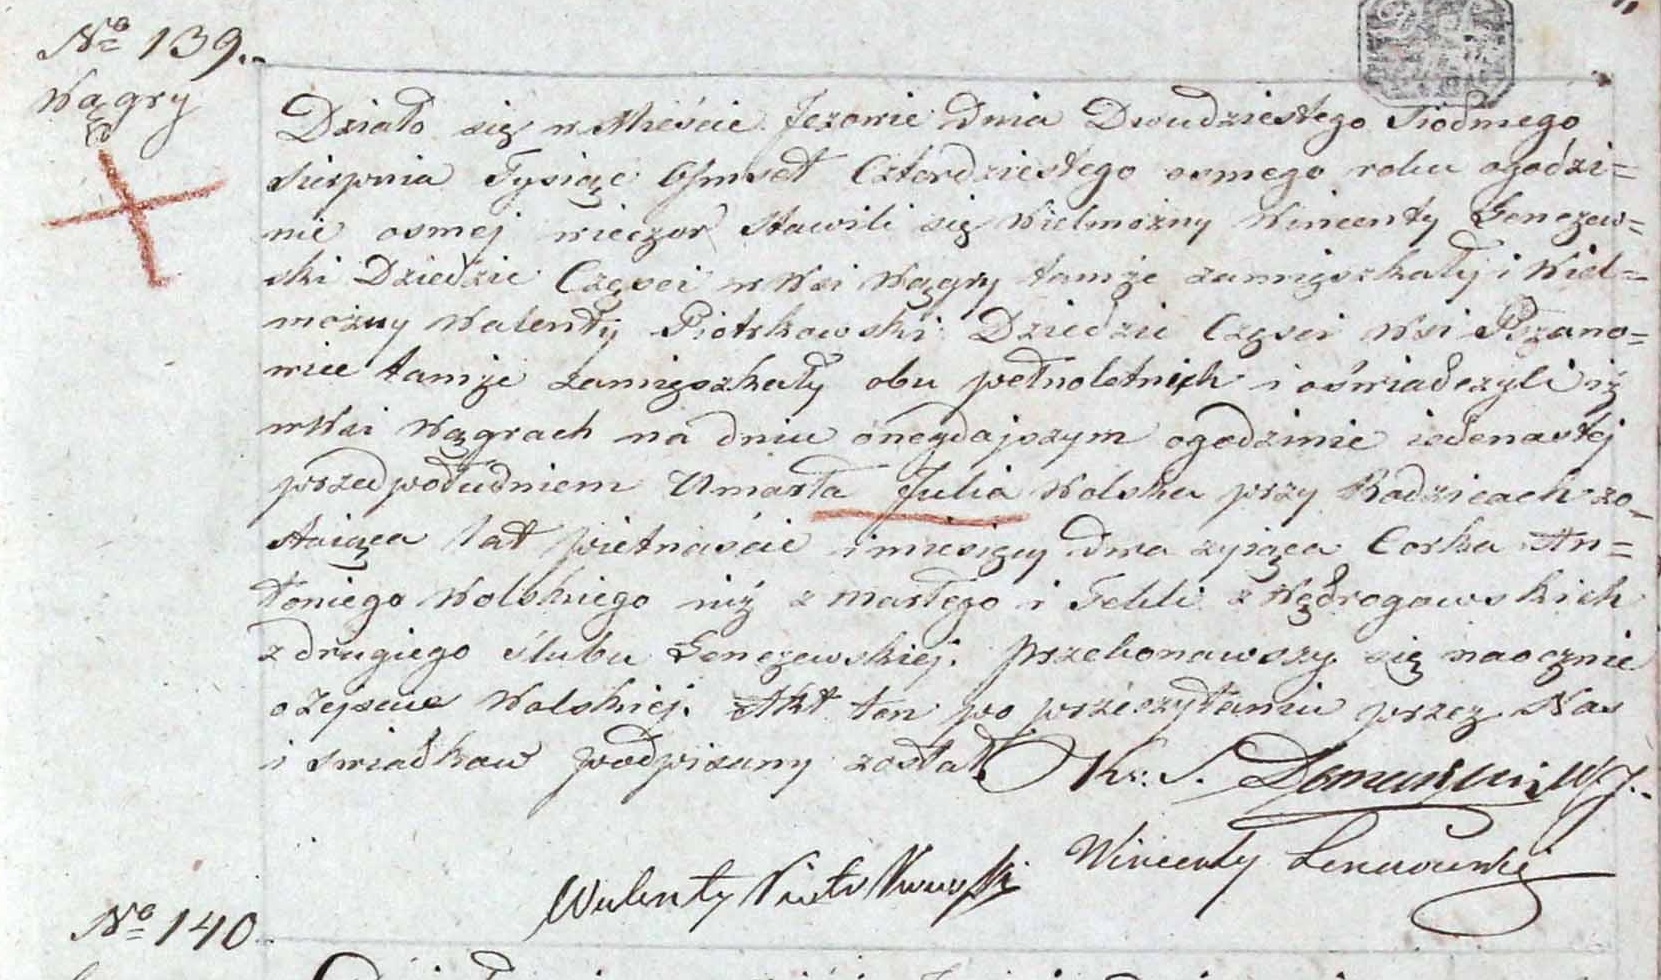 No 139.
Wągry
Działo się w Mieście Jezowie dnia Dwudziestego Siodmego
Sierpnia Tysiąc Ośmset Czterdziestego osmego roku ogodzi=
nie osmej wieczor stawili się Wielmożny Wincenty Lenczew=
ski Dziedzic Częsci w Wsi Wągry tamże zamięszkały i Wiel=
możny Walenty Piotrkowski Dziedzic Częsci Wsi
wice tamże zamięszkały obu pełnoletnich i oświadczyli iż
w Wsi Wągrach na dniu onegdajszym ogodzinie iedenastej
przed południem Umarła Julia Wolska przy Rodzicach zo=
staiąca lat pietnaście i miesięcy dwa zyjąca Corka An=
toniego Wolskiego niż zmarłego i Tekli z Wędrogowskich
z drugiego ślubu Lenczewskiej. Przekonawszy się naocznie
o Zejsciu Wolskiej. Akt ten po przeczytaniu przez Nas
i swiadkow podpisany został Ks: S.
Wincenty
Walenty Piotrkowski
No 140